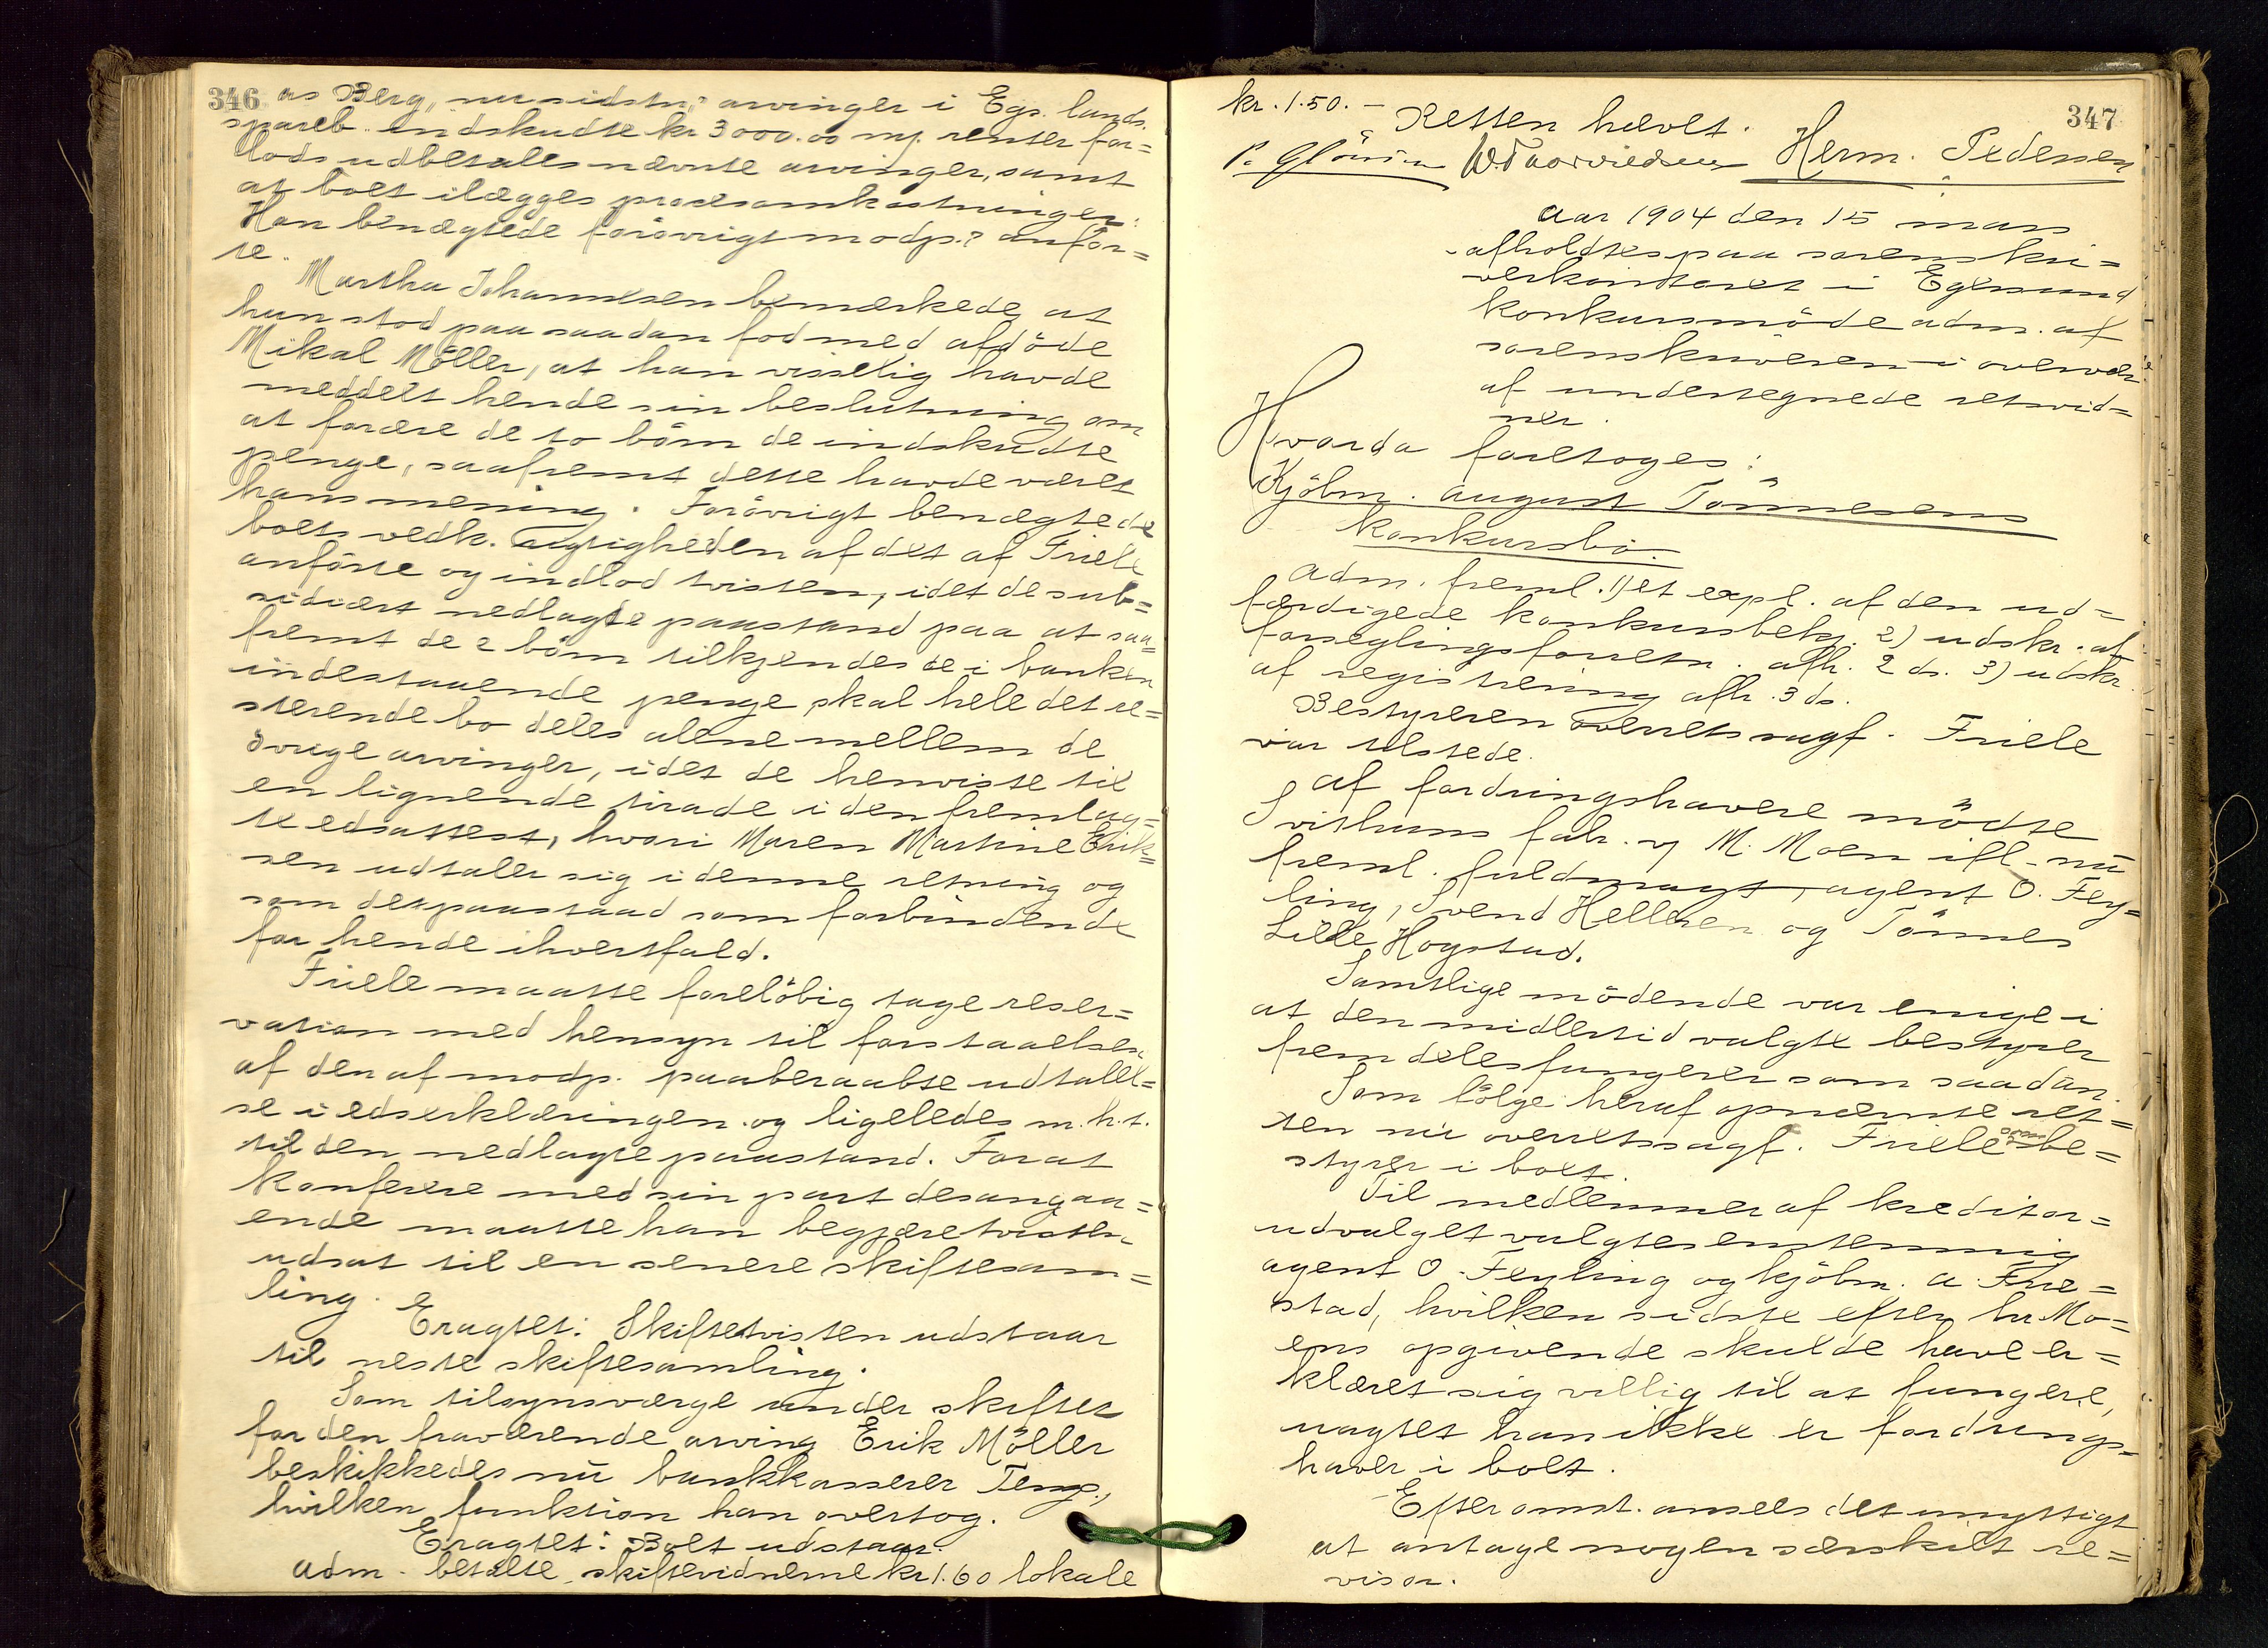 346
as Berg, nu sidstn.s arvinger i Egs. lands.
spareb. indskudte kr 3000.00 m/ renter for=
lods udbetales nævnte arvinger, samt
at boet ilægges procesomkostninger.
Han benægtede forövrigt modp.s anför=
te.
Martha Johannesen bemærkede at
hun stod paa saadan fod med afdöde
Mikal Möller, at han visselig havde
meddelt hende sin beslutning om
at forære de to börn de indskudte
penge, saafremt dette havde været
hans mening. Forövrigt benægtede
boets vedk. rigtigheden af det af Friele
anförte og indlod tvisten, idet de sub=
sidiært nedlagde paastand paa at saa=
fremt de 2 börn tilkjendes de i banken
indestaaende penge skal hele det re=
sterende bo deles alene mellem de
övrige arvinger, idet de henviste til
en lignende tirade i den fremlag=
te edsattest, hvori Maren Martine Erik=
sen udtaler sig i denne retning og
som det paastaad som forbindende
for hende ihvertfald.
Friele maatte foreløbig tage reser=
vation med hensyn til forstaaelsen
af den af modp. paaberaabte udtalel=
se i edserklæringen og ligeledes m.h.t.
til den nedlagte paastand. For at
konferere med sin part desangaa=
ende maatte han begjære tvisten
udsat til en senere skiftesam=
ling.
Eragtet: Skiftetvisten udstaar
til neste skiftesamling.
Som tilsynsværge under skiftet
for den fraværende arving Erik Möller
beskikkedes nu bankkasserer Feng.,
hvilken funktion han overtog.
Eragtet: Boet udstaar.
Adm. betalte skiftevidnerne kr 1.60 lokale
347
kr. 1.50. –
Retten hævet.
Herm. Pedersen
Aar 1904 den 15 mars
afholdtes paa sorenskri=
verkontoret i Egersund
konkursmöde adm. af
sorenskriveren i overvær
af undertegnede retsvid=
ner.
Hvorda foretoges:
Kjöbm. August Tönnesens
konkursbo.
Adm. freml. 1) et expl. af den ud=
færdigede konkursbekj. 2) udskr. af
forseglingsforretn. afh. 2 ds. 3) udskr.
af registrering afh. 3 ds.
Bestyreren overretssagf. Friele
var tilstede.
Af fordringshavere mödte
Svithuns fabr. v/ M. Moen ifl. nu
freml. fuldmagt, agent O. Fey=
ling, Svend Helleren og Tönnes
Lille Hogstad.
Samtlige mödende var enige i
at den midlertid valgte bestyrer
fremdeles fungerer som saadan.
Som fölge heraf opnævnte ret=
ten nu overretssagf. Friele som be=
styrer i boet.
Til medlemmer af kreditor=
udvalget valgtes enstemmig
agent O. Feyling og kjöbm. A Frie=
stad, hvilken sidste efter hr Mo=
ens opgivende skulde have er=
klæret sig villig til at fungere,
uagtet han ikke er fordrings=
haver i boet.
Efter omst. ansees det unyttigt
at antage nogen særskilt re=
visor.